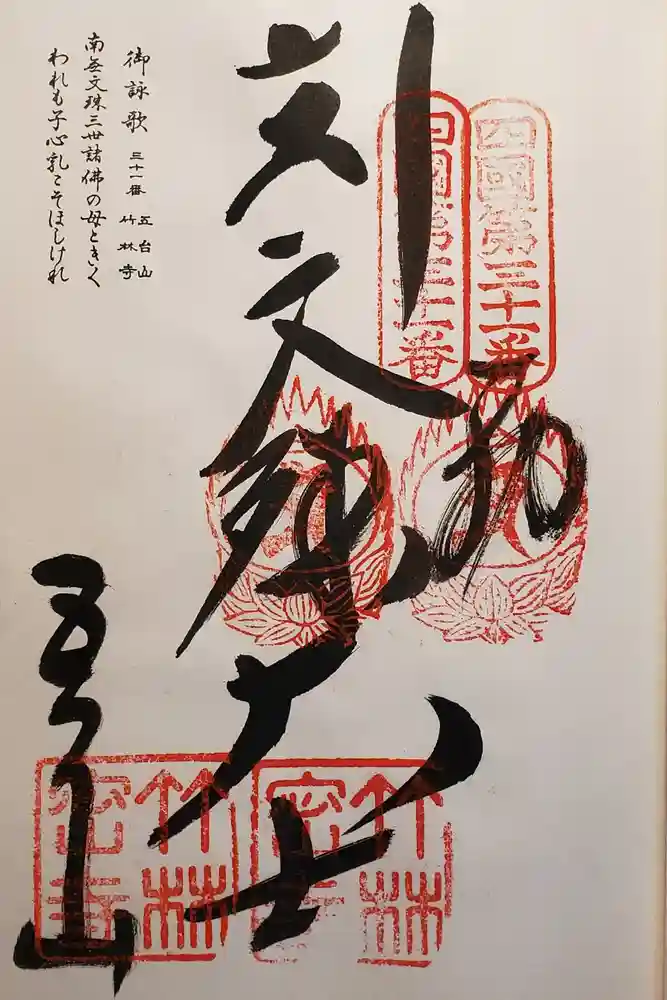 四國第三十一番
四國第三十一番
文殊大士
竹林
密寺
竹林
密寺
五台山
御詠歌 三十一番 五台山 竹林寺
南無文珠三世諸佛の母ときく
われも子心乳こそほしけれ